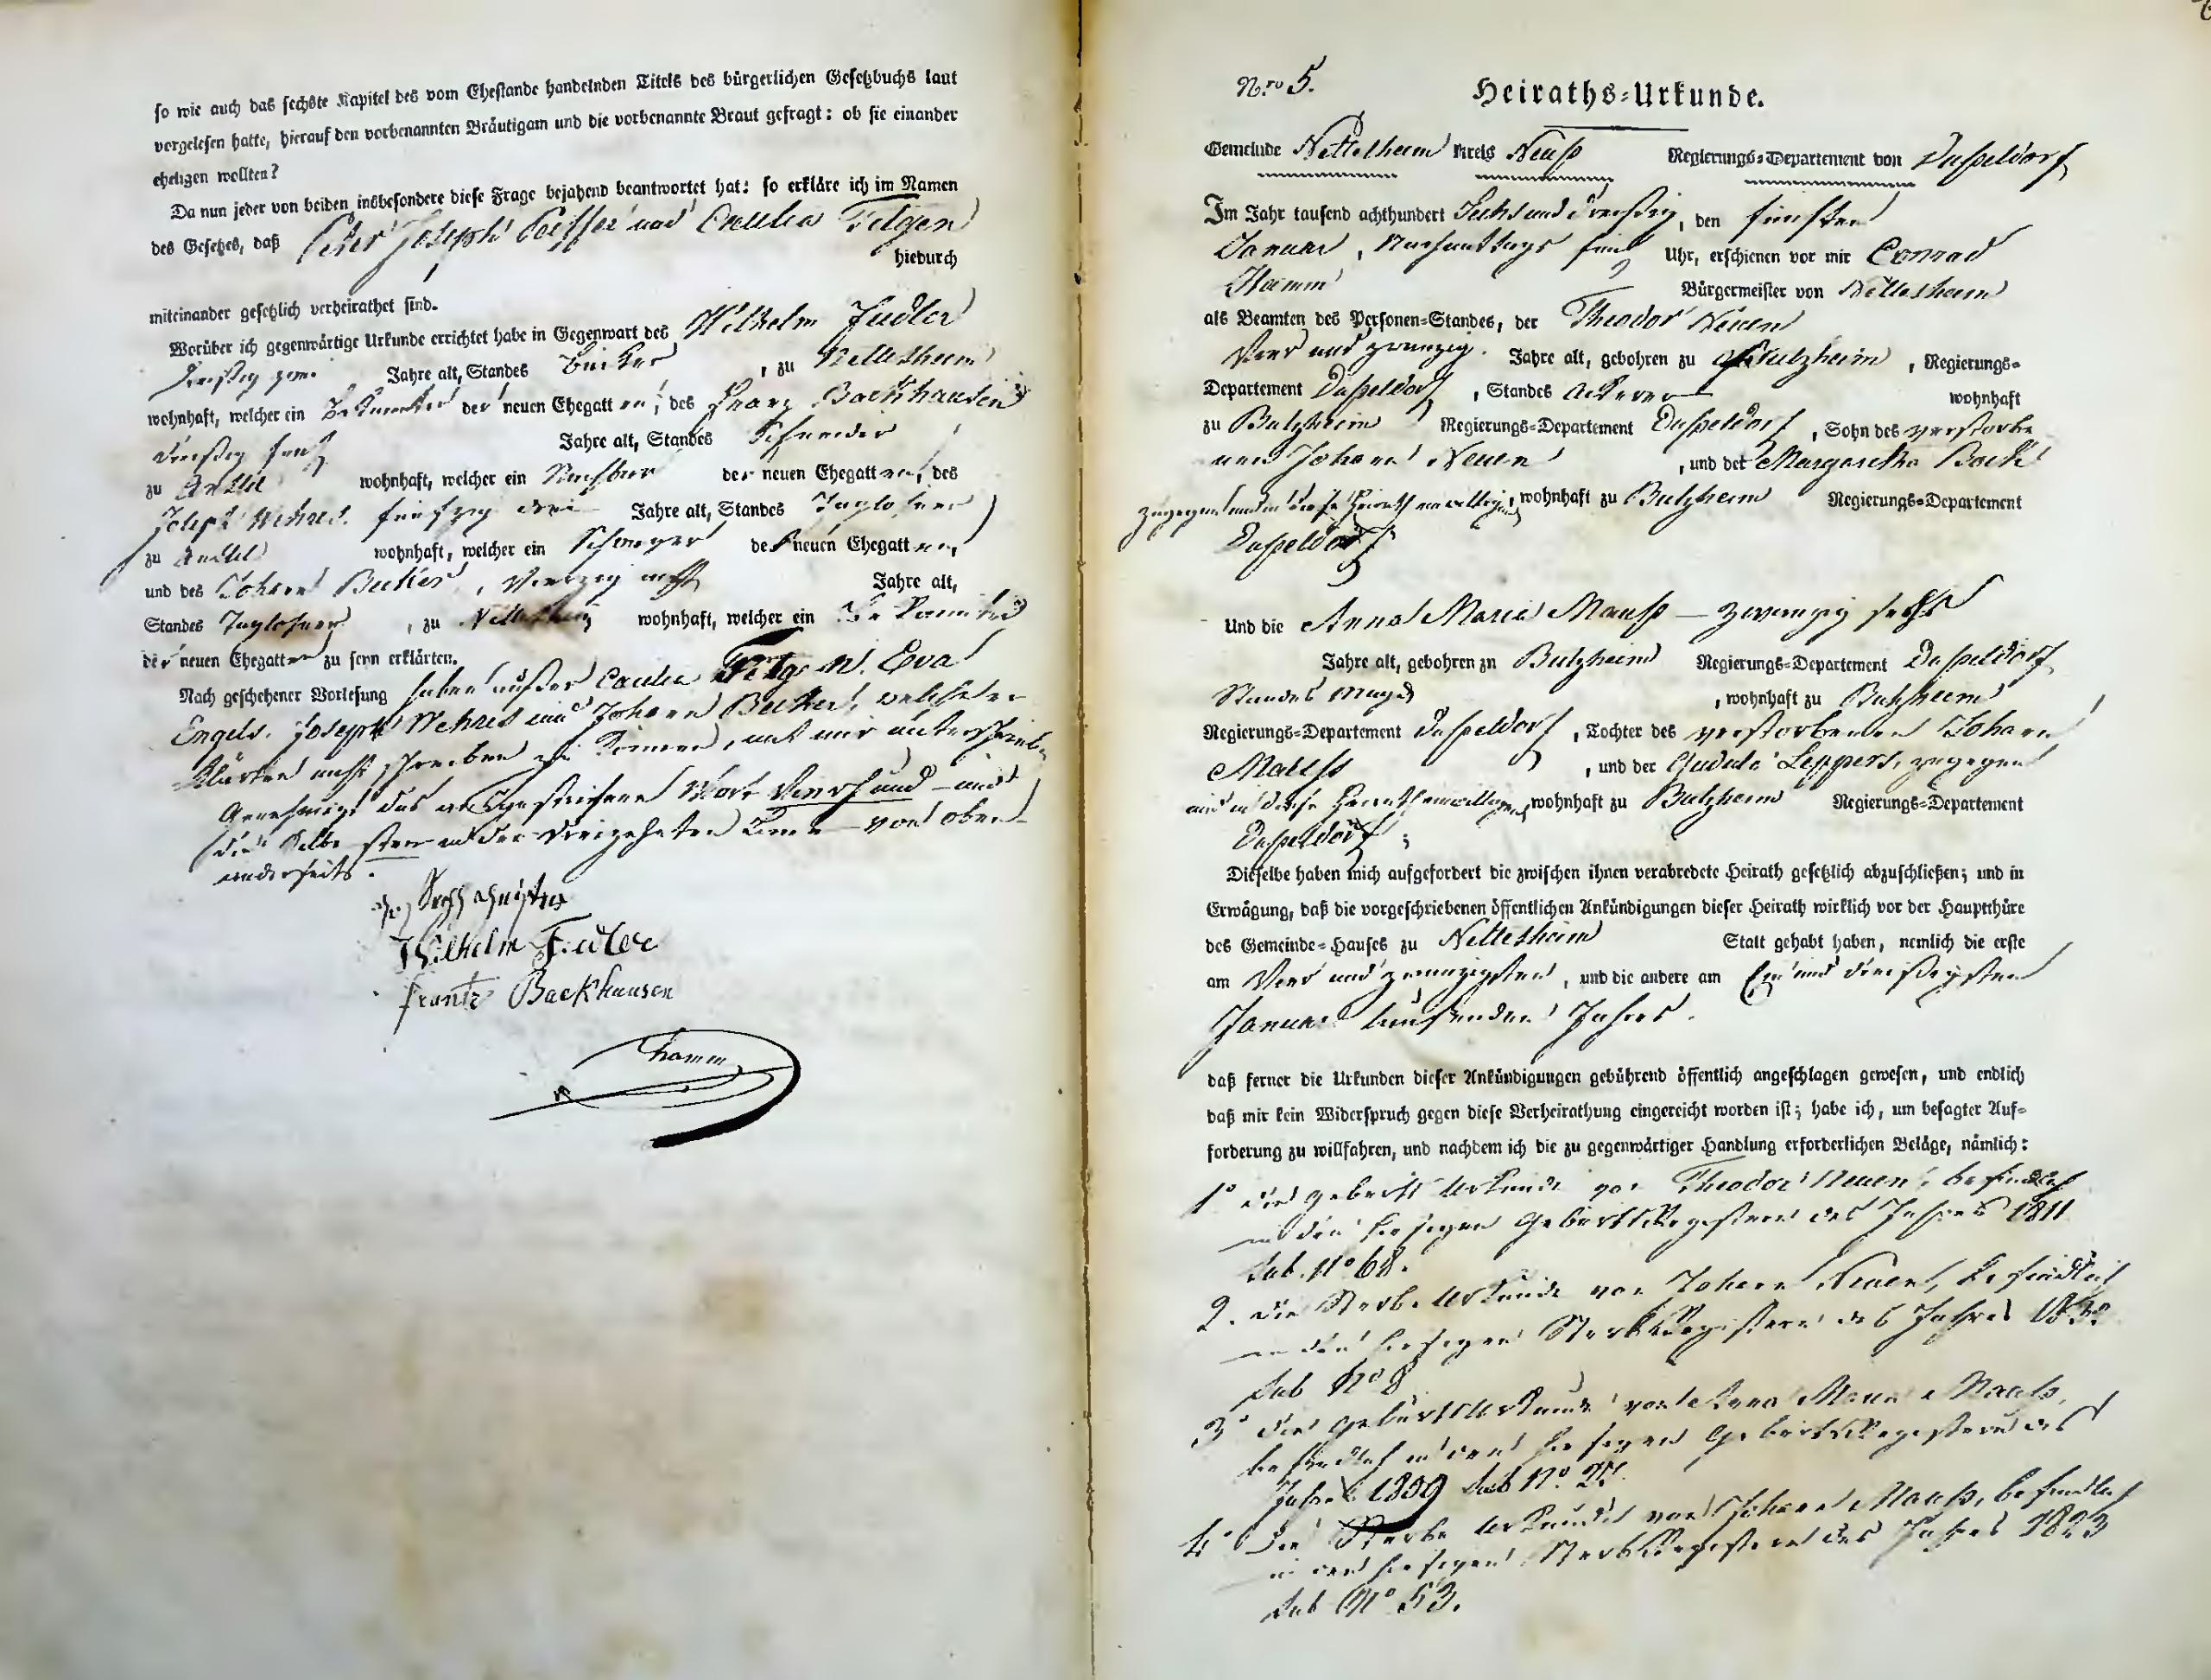 so wie auch das sechste Kapitel des vom Ehestande handelnden Titels des bürgerlichen Gesetzbuchs laut
vorgelesen hatte, hierauf den vorbenannten Bräutigam und die vorbenannte Braut gefragt: ob sie einander
eheligen wollten?
Da nun jeder von beiden insbesondere diese Frage bejahend beantwortet hat: so erkläre ich im Namen
des Gesetzes, daß Peter Joseph Peiffer und Caecilia Filgen
hiedurch
miteinander gesetzlich verheirathet sind.
Worüber ich gegenwärtige Urkunde errichtet habe in Gegenwart des Wilhelm Fiedler
dreißig zwei Jahre alt, Standes Bäcker, zu Nettesheim
wohnhaft, welcher ein Bekannter der neuen Ehegatten, des Franz Backhausen
dreißig fünf Jahre alt, Standes Schneider
zu Anstel wohnhaft, welcher ein Nachbar der neuen Ehegatten, des
Joseph Wehres fünfzig drei Jahre alt, Standes Taglohner
zu Anstel wohnhaft, welcher ein Schwager der neuen Ehegatten,
und des Johann Becker, vierzig acht Jahre alt,
Standes Taglohner, zu Nettesheim wohnhaft, welcher ein Bekannter
der neuen Ehegatten zu seyn erklärten.
Nach geschehener Vorlesung haben außer Caecilia Filgen. Eva
Engels. Joseph Wehres und Johann Becker, welche er-
klärten nicht schreiben zu können, mit mir unterschrieben
Genehmigt das ausgestrichene Wort und
die Silbe sten in der dreizehnten Linie von oben
anderseits.
Wilhelm Fiedler
Frantz Backhausen
Hamm
Nro 5.
Heiraths-Urkunde.
Gemeinde Nettesheim Kreis Neuß Regierungs-Departement von Düsseldorf
Im Jahr tausend achthundert Sechs und dreißig, den fünften
Januar, Nachmittags fünf Uhr, erschienen vor mir Conrad
Hamm Bürgermeister von Nettesheim
als Beamten des Personen-Standes, der Theodor Neuen
Vier und zwanzig Jahre alt, gebohren zu Butzheim, Regierungs-
Departement Düsseldorf, Standes Ackerer wohnhaft
zu Butzheim Regierungs-Departement Düsseldorf, Sohn des verstorbe
nen Johann Neuen, und der Margaretha Bock
zugegen und in diese Heirath einwilligend, wohnhaft zu Butzheim Regierungs-Departement
Düsseldorf
Und die Anna Maria Mauß — zwanzig sechs
Jahre alt, gebohren zu Butzheim Regierungs-Departement Düsseldorf
Standes Magd, wohnhaft zu Butzheim
Regierungs-Departement Düsseldorf, Tochter des verstorbenen Johann
Mauß, und der Gudula Leppers, zugegen
und in diese Heirath einwilligend, wohnhaft zu Butzheim Regierungs-Departement
Düsseldorf;
Dieselbe haben mich aufgefordert die zwischen ihnen verabredete Heirath gesetzlich abzuschließen; und in
Erwägung, daß die vorgeschriebenen öffentlichen Ankündigungen dieser Heirath wirklich vor der Hauptthüre
des Gemeinde-Hauses zu Nettesheim Statt gehabt haben, nemlich die erste
am Vier und zwanzigsten, und die andere am Ein und dreißigsten
Januar laufenden Jahres.
daß ferner die Urkunden dieser Ankündigungen gebührend öffentlich angeschlagen gewesen, und endlich
daß mir kein Widerspruch gegen diese Verheirathung eingereicht worden ist; habe ich, um besagter Auf-
forderung zu willfahren, und nachdem ich die zu gegenwärtiger Handlung erforderlichen Beläge, nämlich:
1° die Geburts Urkunde von Theodor Neuen, befindlich
in den hiesigen Geburts Registern des Jahres 1811
sub. N° 68.
2. die Sterbe Urkunde von Johann Neuen, befindlich
in den hiesigen Sterb Registern des Jahres 1832
sub N° 8
3° die Geburts Urkunde von Anna Maria Mauß,
befindlich in den hiesigen Geburts Registern des
Jahres 1809 sub N° 25.
4° Die Sterbe Urkunde von Johann Mauß, befindlich
in den hiesigen Sterb Registern des Jahres 1823
sub N° 53.